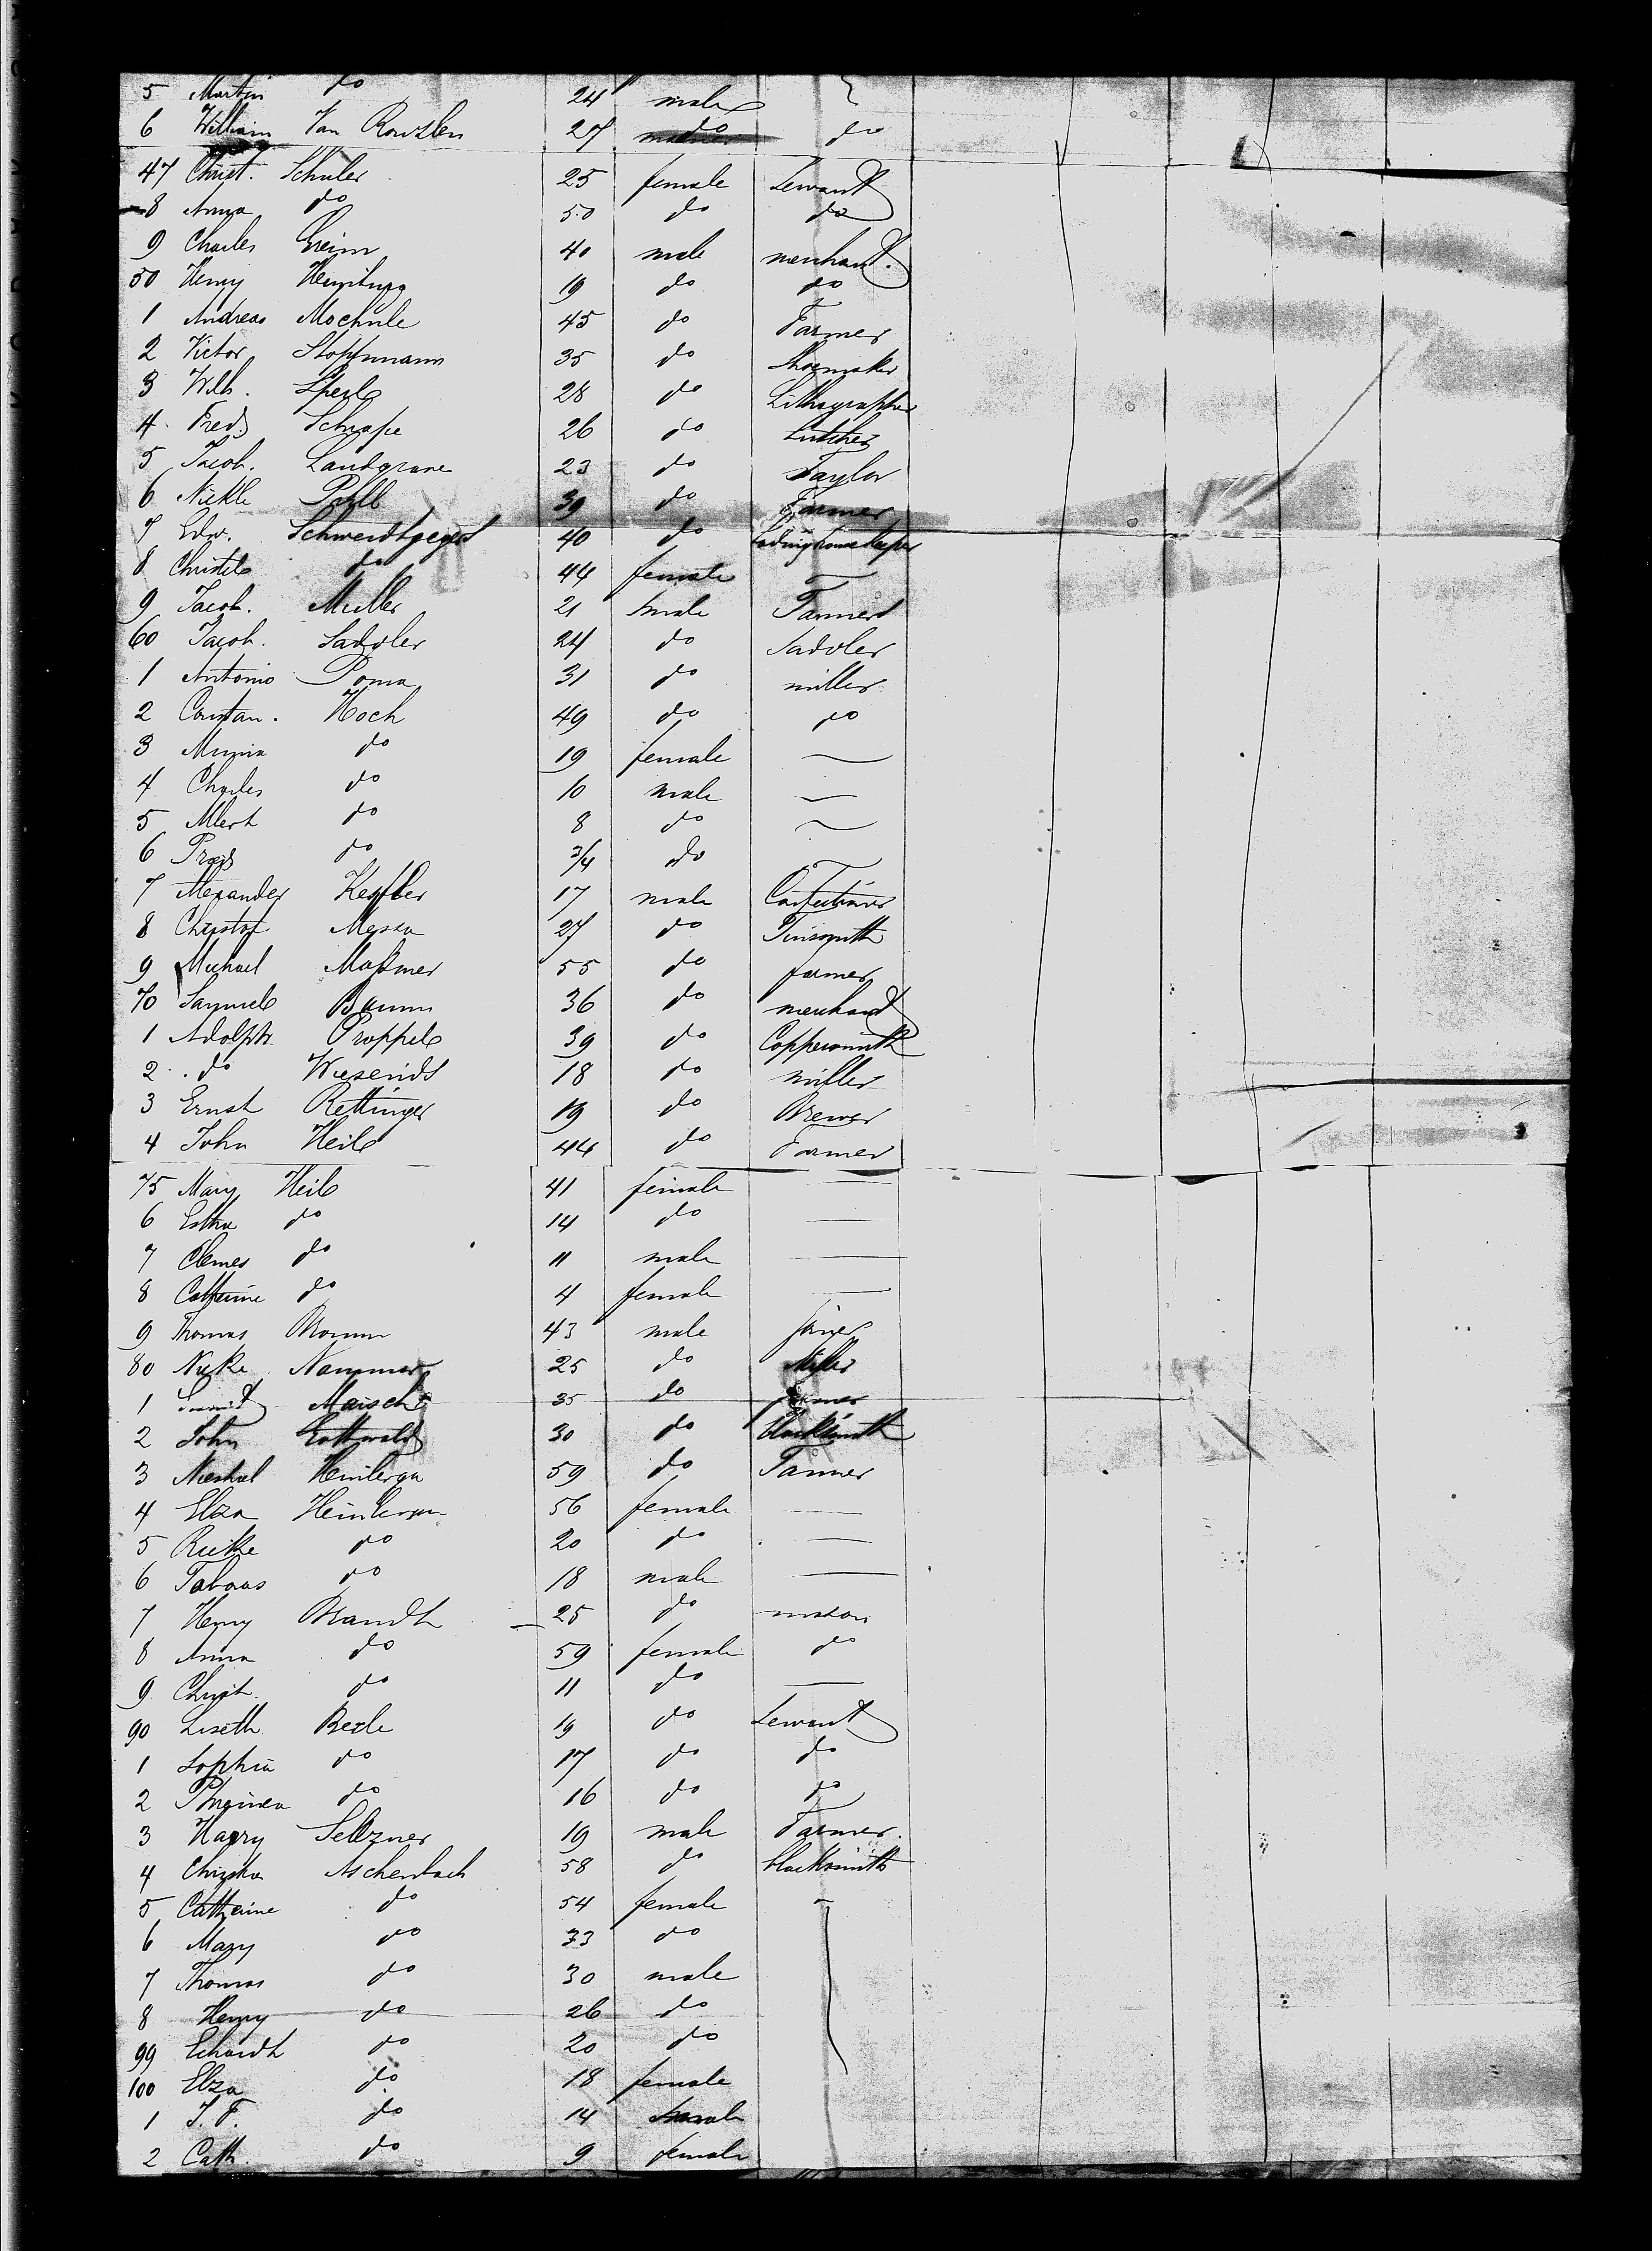 5 Martin do 24 male
6 William Van Rouzlen 27 do do
47 Christ. Schuler 25 female Servant
8 Anna do 50 do do
9 Charles Greim 40 male merchant.
50 Henry 19 do do
1 Andreas Mochule 45 do Farmer
2 Victor Stoffmann 35 do Shoemaker
3 Wilh. 28 do Lithographer
4 Fred. Schrape 26 do butcher
5 Jacob. Landgrave 23 do Taylor
6 Nickle 39 do Farmer
7 Edw. Schwerdtgegert 40 do Lodinghouse Keeper
8 Christile do 44 female
9 Jacob. Muller 21 male Tanner
60 Jacob. Sadler 24 do Sadler
1 Antonio Poma 31 do miller
2 Constan. Hoch 49 do do
3 Minna do 19 female —
4 Charles do 10 male —
5 Albert do 8 do —
6 do 3/4 do
7 Alexander Keffler 17 male Confectioner
8 Christof Messa 27 do Tinsmith
9 Michael Massmer 55 do farmer
70 Samuel Baum 36 do merchant
1 Adolph Proppel 39 do Coppersmith
2 do 18 do miller
3 Ernst Rettinger 19 do Brewer
4 John Heil 44 do Farmer
75 Mary Heil 41 female —
6 Esther do 14 do —
7 Clemes do 11 male —
8 Catherine do 4 female —
9 Thomas Bromm 43 male joiner
80 Nicke Nammer 25 do Miller
1 Maisch 35 do farmer
2 John Gottwald 30 do blacksmith
3 Michael Heinlergn 59 do Farmer
4 Elza Heinlergn 56 female —
5 Rieke do 20 do —
6 Tobias do 18 male —
7 Henry Brandt 25 do mason
8 Anna do 59 female do
9 Christ. do 11 do —
90 Liseth Bezle 19 do Servant
1 Sophia do 17 do do
2 do 16 do do
3 Harry Selzner 19 male Farmer.
4 Christian Aschenbach 58 do blacksmith
5 Catherine do 54 female
6 Mary do 33 do
7 Thomas do 30 male
8 Henry do 26 do
99 Echardt do 20 do
100 Elza do 18 female
1 J. F. do 14 male
2 Cath. do 9 female